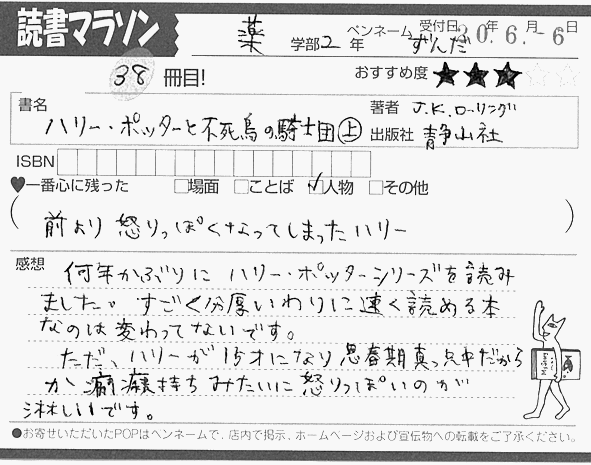 読書マラソン
薬 学部 2 年 ペンネーム ずんだ 受付日 20年6.月-6日
38 冊目! おすすめ度 ★★★☆☆
書名 ハリー・ポッターと不死鳥の騎士団(上)
著者 J.K.ローリング
出版社 静山社
ISBN
♥一番心に残った □場面 □ことば ☑人物 □その他
(前より怒りっぽくなってしまったハリー)
感想 何年かぶりにハリー・ポッターシリーズを読み
ました。すごく分厚いわりに速く読める本
なのは変わってないです。
ただ、ハリーが15才になり思春期真っ只中だから
か癇癪持ちみたいに怒りっぽいのが
淋しいです。
●お寄せいただいたPOPはペンネームで、店内で掲示、ホームページおよび宣伝物への転載をご了承ください。